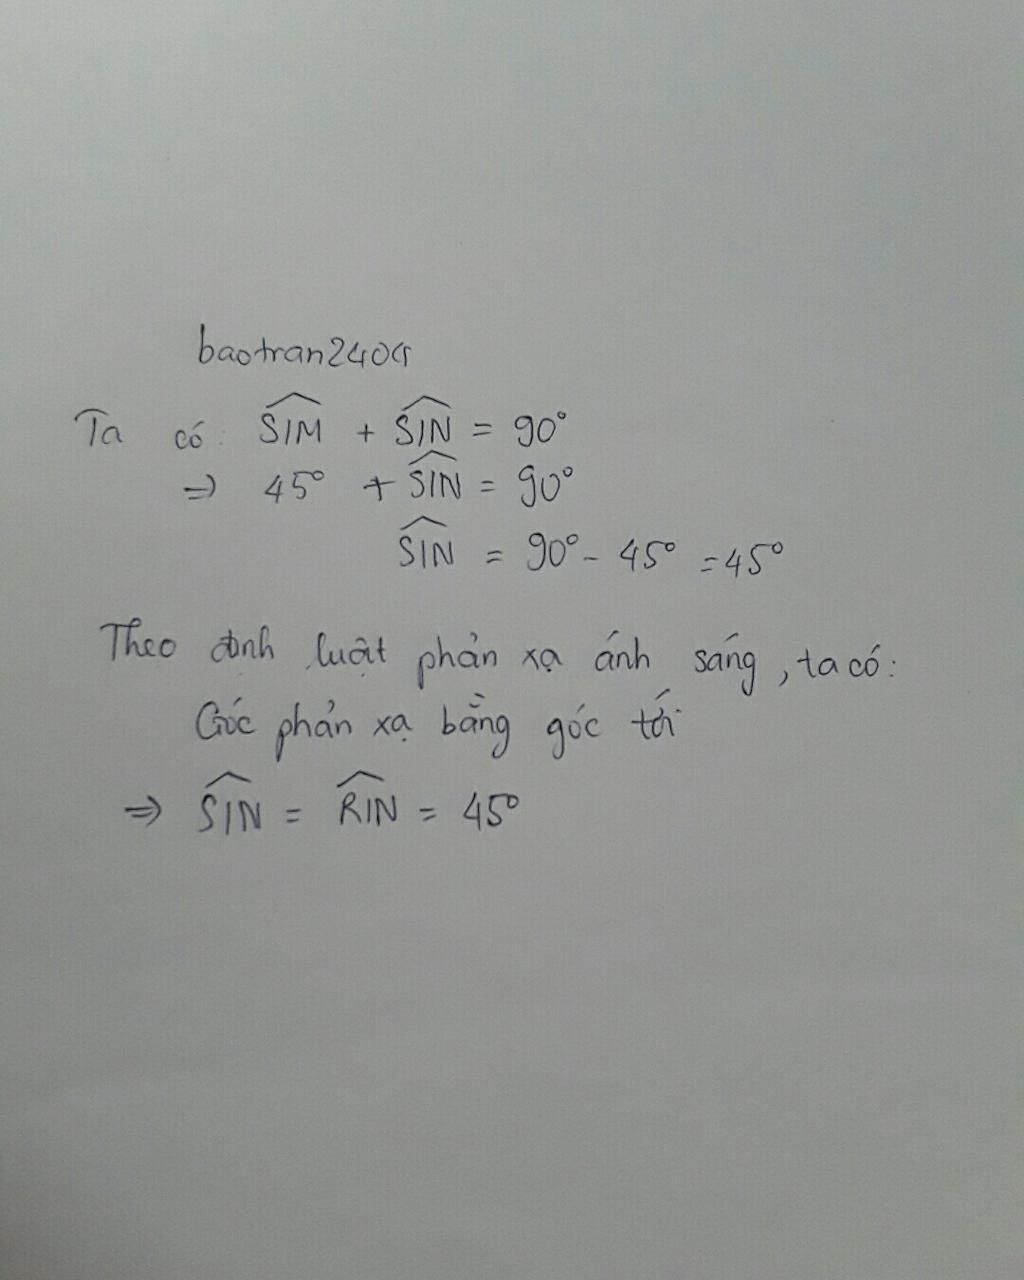 baotran2404
Ta có: SIM + SIN = 90°
=> 45° + SIN = 90°
SIN = 90° - 45° = 45°
Theo định luật phản xạ ánh sáng, ta có:
Góc phản xạ bằng góc tới
=> SIN = RIN = 45°